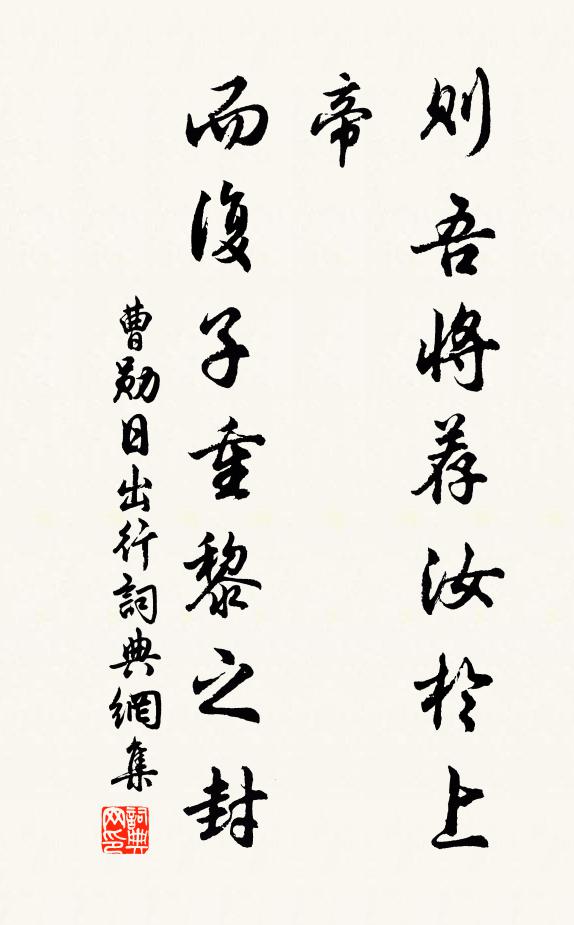 则吾将荐汝於上
帝
而復子重黎之封
曹勋日出行詞典網集
詞典
网印